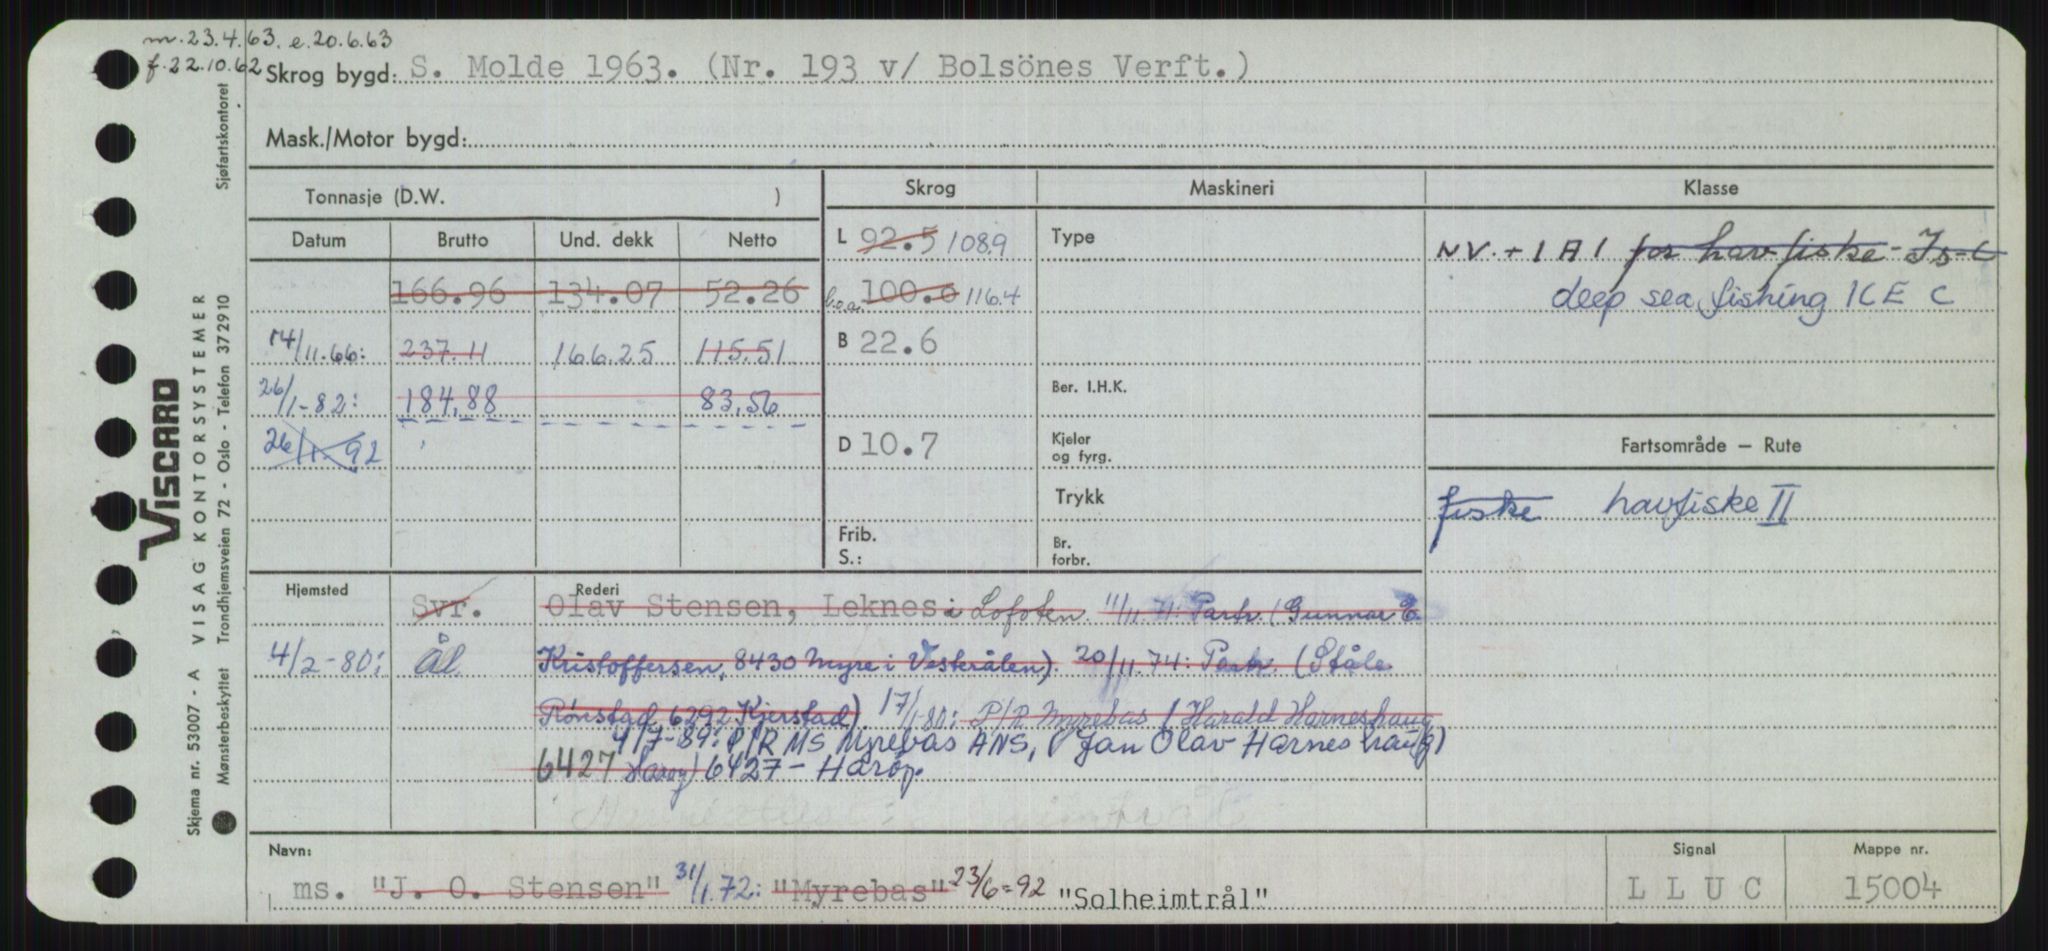 m. 23.4.63. e. 20.6.63
f. 22.10.62 Skrog bygd: S. Molde 1963. (Nr. 193 v/ Bolsönes Verft.)
Mask./Motor bygd:
Tonnasje (D.W. ) Skrog Maskineri Klasse
Datum Brutto Und. dekk Netto L 92.5 108.9 Type NV. + 1 A 1 for havfiske - Is-C
166.96 134.07 52.26 l.o.a. 100.0 116.4 deep sea fishing ICE C
14/11.66: 237.11 166.25 115.51 B 22.6
26/1-82: 184,88 83,56 Ber. I.H.K.
26/1.92 D 10.7 Kjeler og fyrg. Fartsområde — Rute
Trykk fiske havfiske II
Frib. S.: Br. forbr.
Hjemsted Rederi
Svr. Olav Stensen, Leknes i Lofoten. 11/11.71: Partr. (Gunnar E.
4/2-80: Ål. Kristoffersen, 8430 Myre i Vesterålen). 20/11.74: Partr. (Ståle
Rønstad, 6292 Kjerstad) 17/1-80: P/R Myrebas (Harald Harneshaug
4/7-89: P/R MS Myrebas ANS, (Jan Olav Harneshaug)
6427 Harøy) 6427 - Harøy.
Navn: Signal Mappe nr.
ms. "J. O. Stensen" 31/1.72: "Myrebas" 23/6-92 "Solheimtrål" LLUC 15004
VISCARD
Skjema nr. 53007 - A VISAG KONTORSYSTEMER
Mønsterbeskyttet Trondhjemsveien 72 - Oslo - Telefon 372910 Sjøfartskontoret